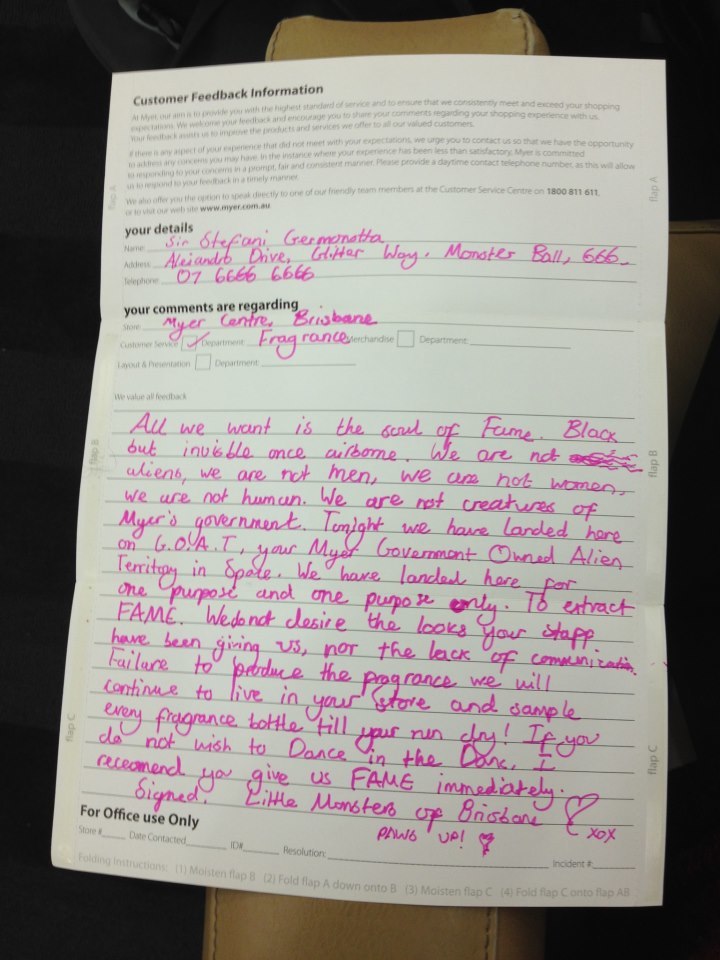 Customer Feedback Information
At Myer, our aim is to provide you with the highest standard of service and to ensure that we consistently meet and exceed your shopping
expectations. We welcome your feedback and encourage you to share your comments regarding your shopping experience with us.
Your feedback assists us to improve the products and services we offer to all our valued customers.
If there is any aspect of your experience that did not meet with your expectations, we urge you to contact us so that we have the opportunity
to address any concerns you may have. In the instance where your experience has been less than satisfactory, Myer is committed
to responding to your concerns in a prompt, fair and consistent manner. Please provide a daytime contact telephone number, as this will allow
us to respond to your feedback in a timely manner.
We also offer you the option to speak directly to one of our friendly team members at the Customer Service Centre on 1800 811 611,
or to visit our web site www.myer.com.au
flap A
flap A
your details
Name: Sir Stefani Germonatta
Address: Alejandro Drive, Glitter Way, Monster Ball, 666
Telephone: 07 6666 6666
your comments are regarding
Store: Myer Centre, Brisbane
Customer Service ✓ Department: Fragrance Merchandise Department:
Layout & Presentation Department:
We value all feedback
All we want is the soul of Fame. Black
but invisble once airborne. We are not
aliens, we are not men, we are not women,
we are not human. We are not creatures of
Myer's government. Tonight we have landed here
on G.O.A.T, your Myer Government Owned Alien
Territoy in Space. We have landed here for
one purpose and one purpose only. To extract
FAME. We do not desire the looks your staff
have been giving us, nor the lack of communication.
Failure to produce the pragrance we will
continue to live in your store and sample
every fragrance bottle till your run dry! If you
do not wish to Dance in the Dark, I
recomend you give us FAME immediately.
Signed, Little Monsters of Brisbane
xox
PAWS UP!
flap B
flap B
flap C
flap C
For Office use Only
Store # Date Contacted ID# Resolution: Incident #:
Folding Instructions: (1) Moisten flap B (2) Fold flap A down onto B (3) Moisten flap C (4) Fold flap C onto flap AB